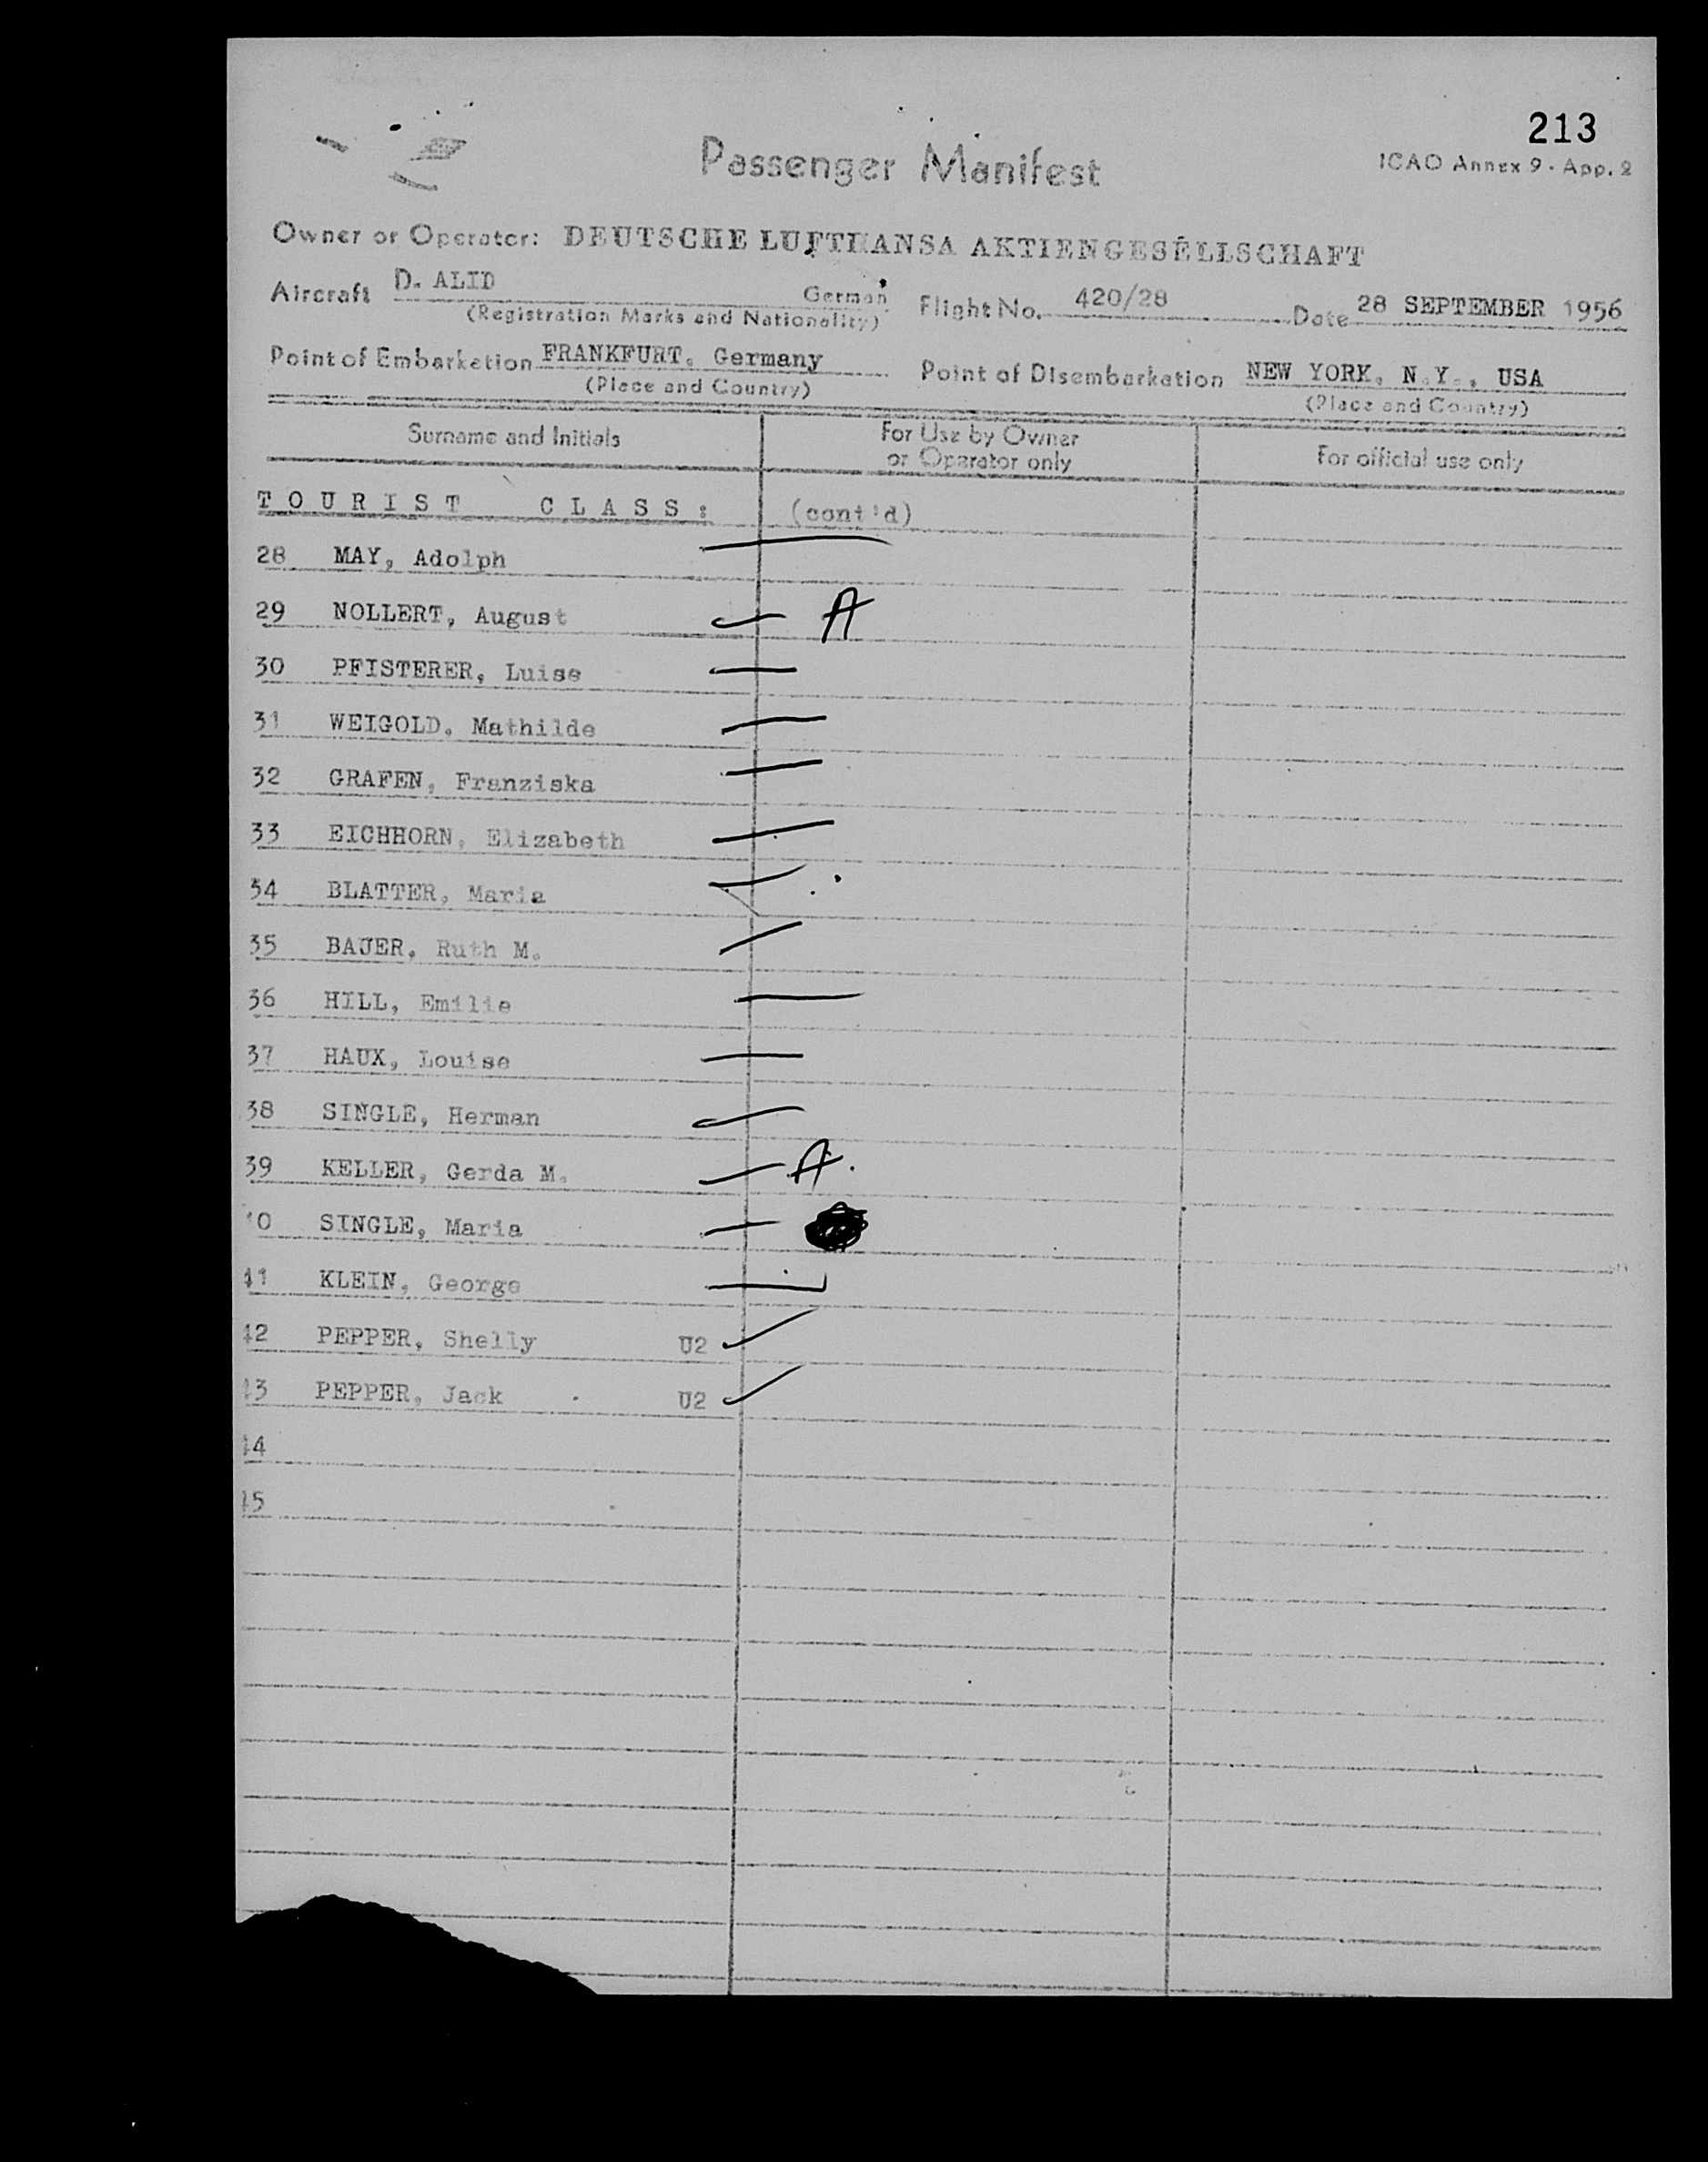 213
Passenger Manifest
ICAO Annex 9 - App. 2
Owner or Operator: DEUTSCHE LUFTHANSA AKTIENGESELLSCHAFT
Aircraft D. ALID German Flight No. 420/28 Date 28 SEPTEMBER 1956
(Registration Marks and Nationality)
Point of Embarkation FRANKFURT, Germany Point of Disembarkation NEW YORK, N.Y., USA
(Place and Country) (Place and Country)
Surname and Initials For Use by Owner or Operator only For official use only
TOURIST CLASS: (cont'd)
28 MAY, Adolph
29 NOLLERT, August A
30 PFISTERER, Luise
31 WEIGOLD, Mathilde
32 GRAFEN, Franziska
33 EICHHORN, Elizabeth
34 BLATTER, Maria
35 BAUER, Ruth M.
36 HILL, Emilie
37 HAUX, Louise
38 SINGLE, Herman
39 KELLER, Gerda M. A.
40 SINGLE, Maria
41 KLEIN, George
42 PEPPER, Shelly U2
43 PEPPER, Jack U2
44
45